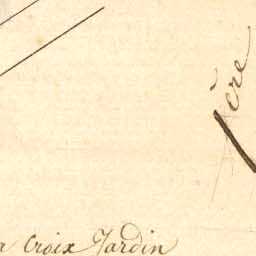 ière
a Croix Jardin